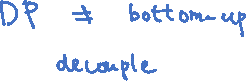 DP ≠ bottom-up
decouple